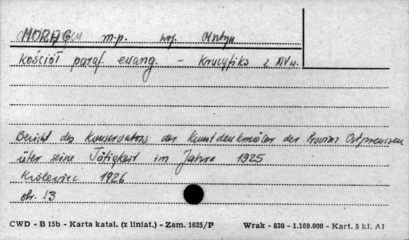 MORĄG m-p. woj. Olsztyn
Kościół paraf. ewang. - Krucyfiks z XIV w.
Bericht des Konservators der Kunstdenkmäler der Provinz Ostpreussen
über seine Tätigkeit im Jahre 1925
Królewiec 1926
str. 13
CWD - B 15b - Karta katal. (z liniat.) - Zam. 1625/P Wrak - 630 - 1.169.000 - Kart. 5 kl. A1